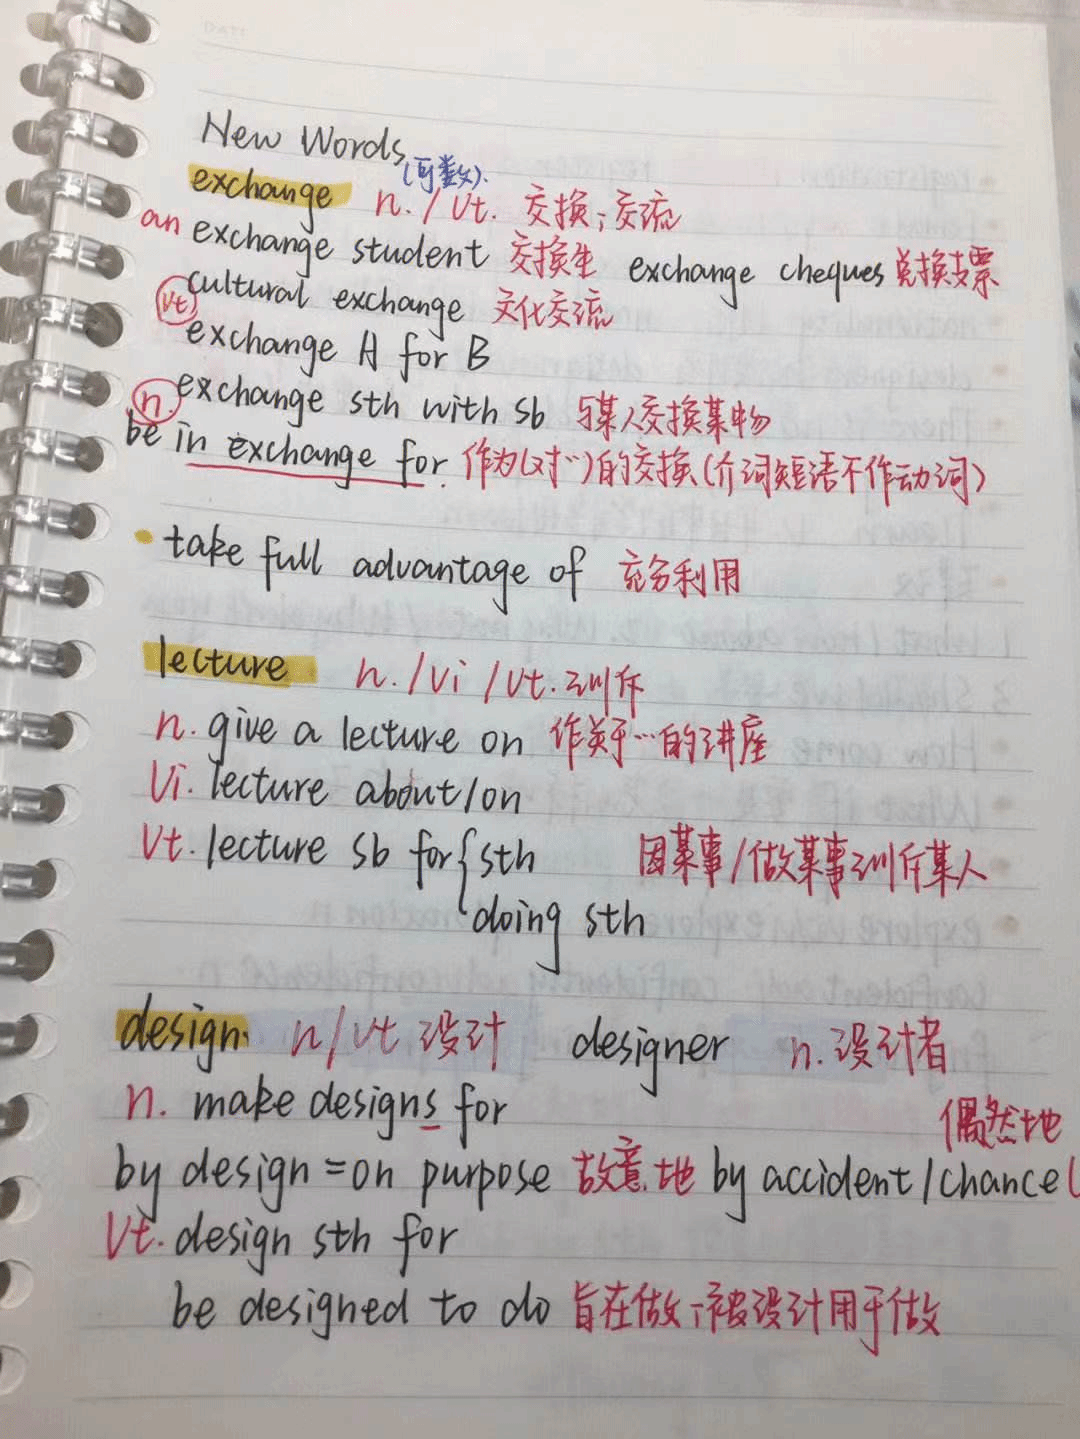 DATE
New Words
exchange n. / vt. (可数). 交换；交流
an exchange student 交换生 exchange cheques 兑换支票
cultural exchange 文化交流
vt exchange A for B
exchange sth with sb 与某人交换某物
n be in exchange for. 作为(对…)的交换(介词短语不作动词)
· take full advantage of 充分利用
lecture n. / vi / vt. 训斥
n. give a lecture on 作关于…的讲座
Vi. lecture about/on
Vt. lecture sb for { sth 因某事/做某事训斥某人
doing sth
design. n/vt 设计 designer n. 设计者
n. make designs for
偶然地
by design = on purpose 故意地 by accident/chance (
Vt. design sth for
be designed to do 旨在做,被设计用于做